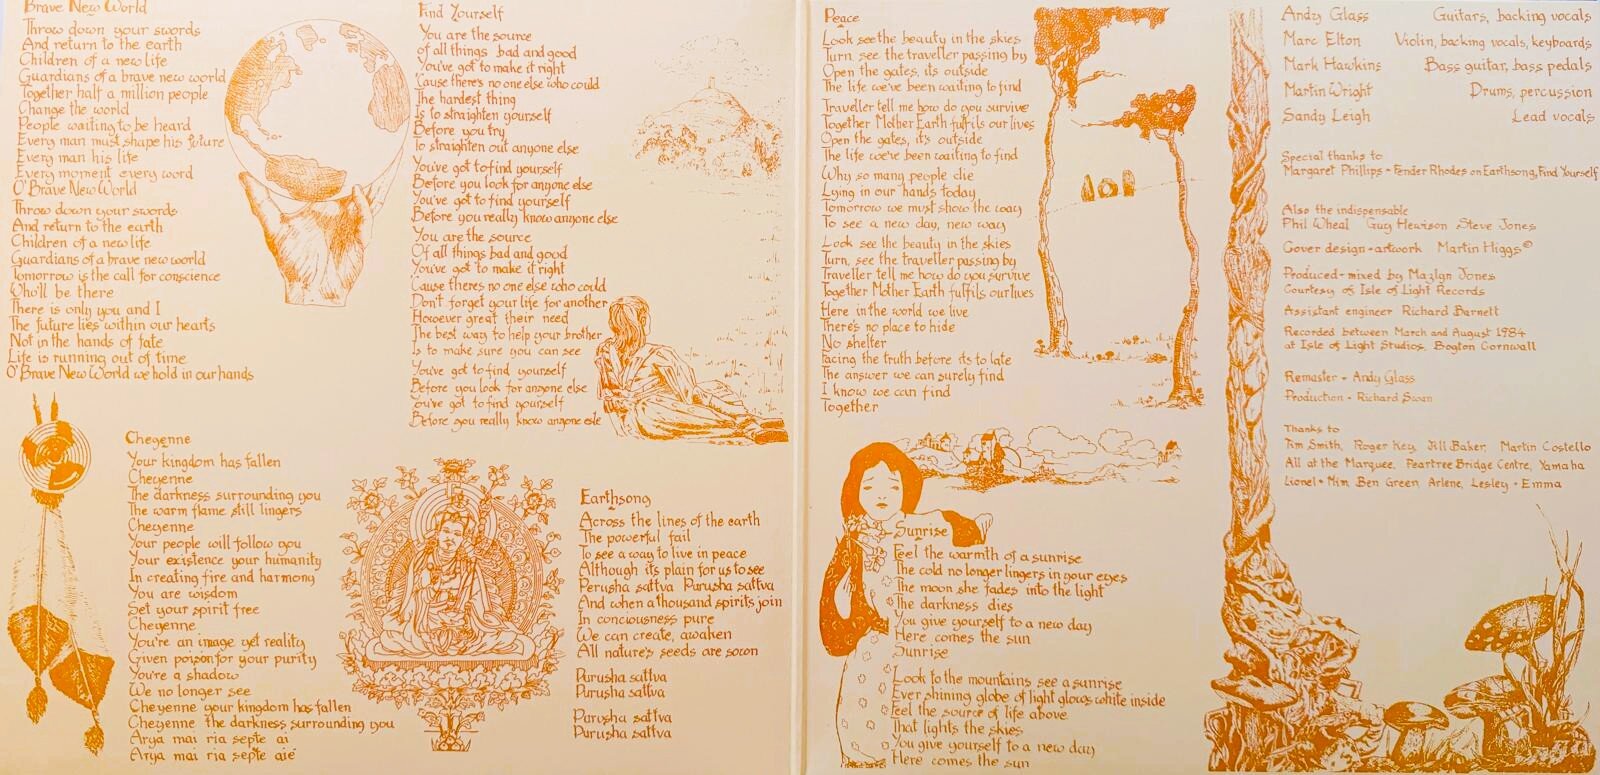 Brave New World
Throw down your swords
And return to the earth
Children of a new life
Guardians of a brave new world
Together half a million people
Change the world
People waiting to be heard
Every man must shape his future
Every man his life
Every moment every word
O'Brave New World
Throw down your swords
And return to the earth
Children of a new life
Guardians of a brave new world
Tomorrow is the call for conscience
Who'll be there
There is only you and I
The future lies within our hearts
Not in the hands of fate
Life is running out of time
O'Brave New World we hold in our hands
Cheyenne
Your kingdom has fallen
Cheyenne
The darkness surrounding you
The warm flame still lingers
Cheyenne
Your people will follow you
Your existence your humanity
In creating fire and harmony
You are wisdom
Set your spirit free
Cheyenne
You're an image yet reality
Given poison for your purity
You're a shadow
We no longer see
Cheyenne your kingdom has fallen
Cheyenne the darkness surrounding you
Arya mai ria septe ai
Arya mai ria septe aie
Find Yourself
You are the source
of all things bad and good
You've got to make it right
'Cause there's no one else who could
The hardest thing
Is to straighten yourself
Before you try
To straighten out anyone else
You've got to find yourself
Before you look for anyone else
You've got to find yourself
Before you really know anyone else
You are the source
Of all things bad and good
You've got to make it right
'Cause theres no one else who could
Don't forget your life for another
However great their need
The best way to help your brother
Is to make sure you can see
You've got to find yourself
Before you look for anyone else
You've got to find yourself
Before you really know anyone else
Earthsong
Across the lines of the earth
The powerful fail
To see a way to live in peace
Although its plain for us to see
Perusha sattva Purusha sattva
And when a thousand spirits join
In conciousness pure
We can create, awaken
All nature's seeds are sown
Purusha sattva
Purusha sattva
Purusha sattva
Purusha sattva
Peace
Look see the beauty in the skies
Turn, see the traveller passing by
Open the gates, its outside
The life we've been waiting to find
Traveller tell me how do you survive
Together Mother Earth fulfils our lives
Open the gates, it's outside
The life we've been waiting to find
Why so many people die
Lying in our hands today
Tomorrow we must show the way
To see a new day, new way
Look see the beauty in the skies
Turn, see the traveller passing by
Traveller tell me how do you survive
Together Mother Earth fulfils our lives
Here in the world we live
There's no place to hide
No shelter
Facing the truth before its to late
The answer we can surely find
I know we can find
Together
Sunrise
Feel the warmth of a sunrise
The cold no longer lingers in your eyes
The moon she fades into the light
The darkness dies
You give yourself to a new day
Here comes the sun
Sunrise
Look to the mountains see a sunrise
Ever shining globe of light glows white inside
Feel the source of life above
That lights the skies
You give yourself to a new day
Here comes the sun
Andy Glass Guitars, backing vocals
Marc Elton Violin, backing vocals, keyboards
Mark Hawkins Bass guitar, bass pedals
Martin Wright Drums, percussion
Sandy Leigh Lead vocals
Special thanks to
Margaret Phillips - Fender Rhodes on Earthsong, Find Yourself
Also the indispensable
Phil Wheal Guy Hewison Steve Jones
Cover design + artwork Martin Higgs©
Produced + mixed by Mazlyn Jones
Courtesy of Isle of Light Records
Assistant engineer Richard Barnett
Recorded between March and August 1984
at Isle of Light Studios, Bogton Cornwall
Remaster - Andy Glass
Production - Richard Swan
Thanks to
Tim Smith, Roger Key, Jill Baker, Martin Costello
All at the Marquee, Peartree Bridge Centre, Yamaha
Lionel + Mim, Ben Green, Arlene, Lesley + Emma